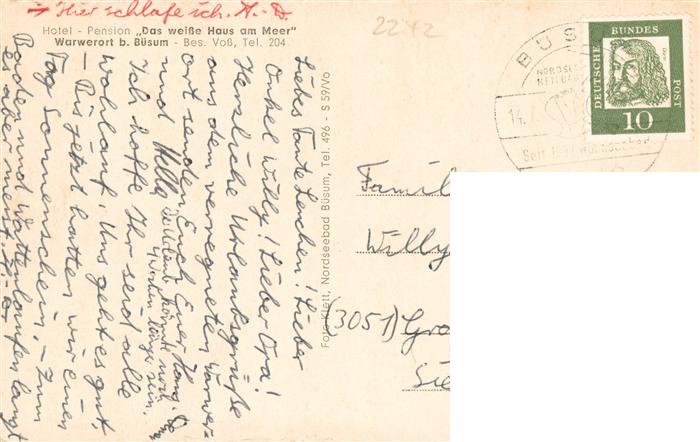 → Hier schlafe ich. A.-D.
Hotel - Pension „Das weiße Haus am Meer"
Warwerort b. Büsum - Bes. Voß, Tel. 204
Liebes Tante Lenchen! Lieber
Onkel Willy! Lieber Opa!
Herzliche Urlaubsgrüße
aus dem verregneten Warwer-
ort senden Euch Euer Hans.
und Hella
Urlaub könnte noch
4 Wochen länger sein.
Ich hoffe Ihr seid alle
wohlauf. Uns geht es gut,
- Bis jetzt hatten wir einen
Tag Sonnenschein. - Zum
Baden und Wattenlaufen langt
es aber meist.
Foto Klett, Nordseebad Büsum, Tel. 496 - S 59/Vo
2242
BÜS
NORDSEE
HEILBAD
14.7
Seit 1837
DEUTSCHE BUNDES POST
10
Famil
Willy
(3051) Gro